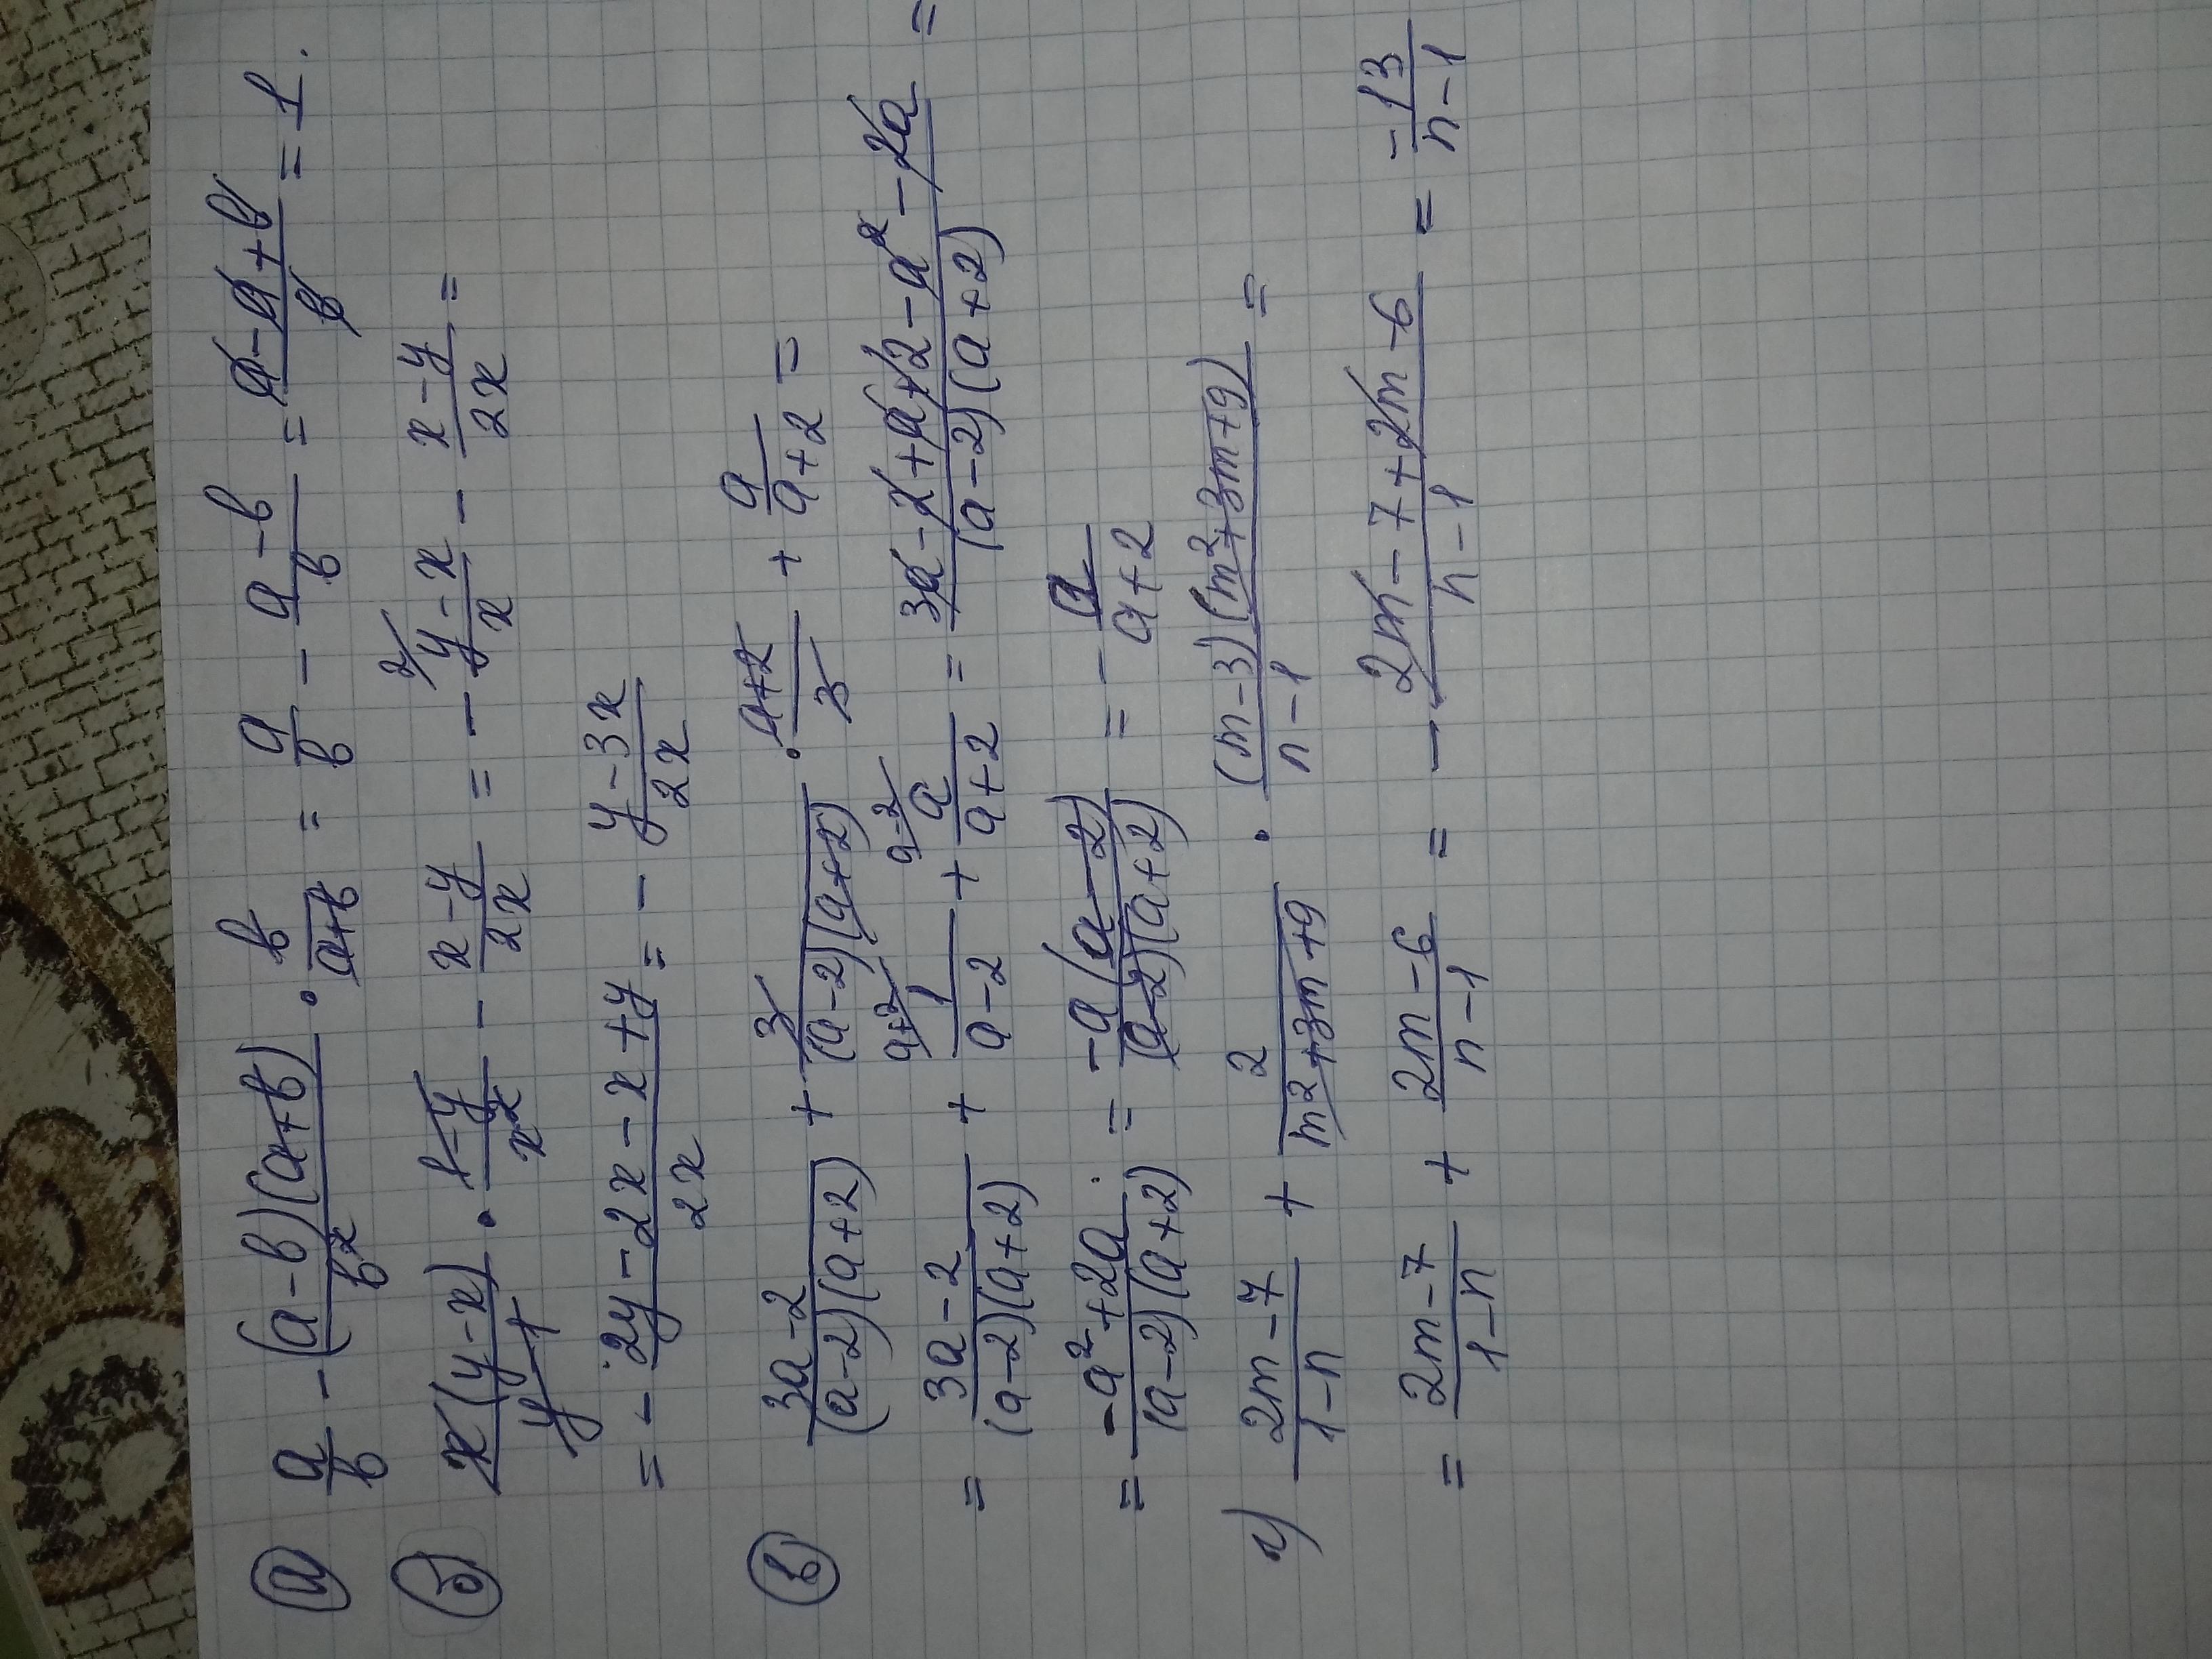 а) a/b - (a-b)(a+b)/b² · b/(a+b) = a/b - (a-b)/b = (a-a+b)/b = 1.
б) x(y-x)/(y-1) · (1-y)/x² - (x-y)/2x = - (y-x)/x - (x-y)/2x =
= - (2y-2x-x+y)/2x = - (y-3x)/2x
в) (3a-2)/((a-2)(a+2)) + 3/((a-2)(a+2)) · (a+2)/3 + a/(a+2) =
= (3a-2)/((a-2)(a+2)) + 1/(a-2) + a/(a+2) = (3a-2+a+2-a²-2a)/((a-2)(a+2)) =
= (-a²+2a)/((a-2)(a+2)) = -a(a-2)/((a-2)(a+2)) = - a/(a+2)
г) (2m-7)/(1-n) + 2/(m²+3m+9) · (m-3)(m²+3m+9)/(n-1) =
= (2m-7)/(1-n) + (2m-6)/(n-1) = - (2m-7+2m-6)/(n-1) = - 13/(n-1)